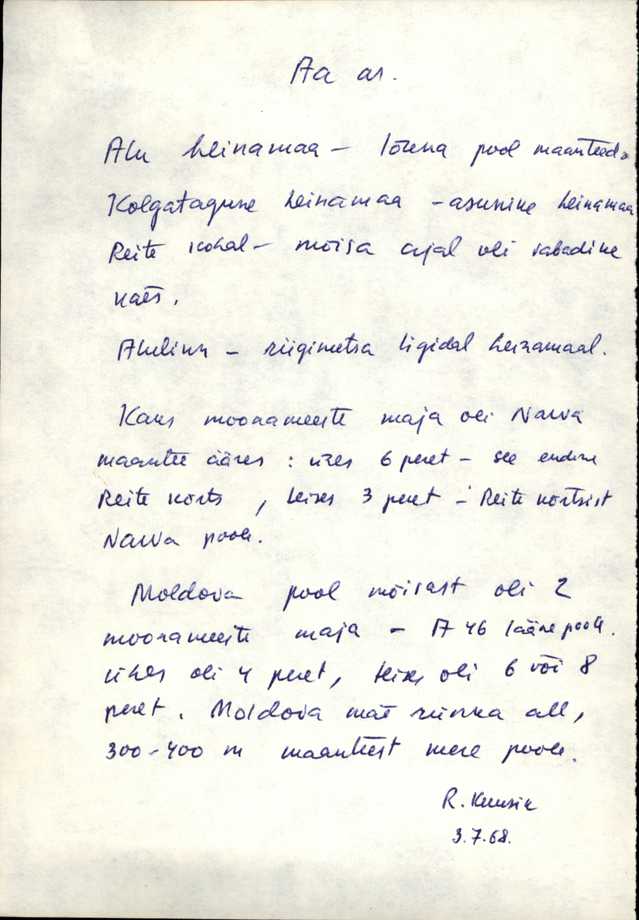 Aa as.
Alu heinamaa – lõuna pool maanteed.
Kolgatagune heinamaa – asunike heinamaa
Reite kohal – mõisa ajal oli vabadike
käes.
Alulinn – riigimetsa ligidal heinamaal.
Kaks moonameeste maja oli Narva
maantee ääres: ühes 6 peret – see endine
Reite kõrts, teises 3 peret – Reite kõrtsist
Narva poole.
Moldova pool mõisast oli 2
moonameeste maja – A 46 lääne pool.
ühes oli 4 peret, teises oli 6 või 8
peret. Moldova mäe rünka all,
300–400 m maanteest mere poole.
R. Kuusik
3.7.68.